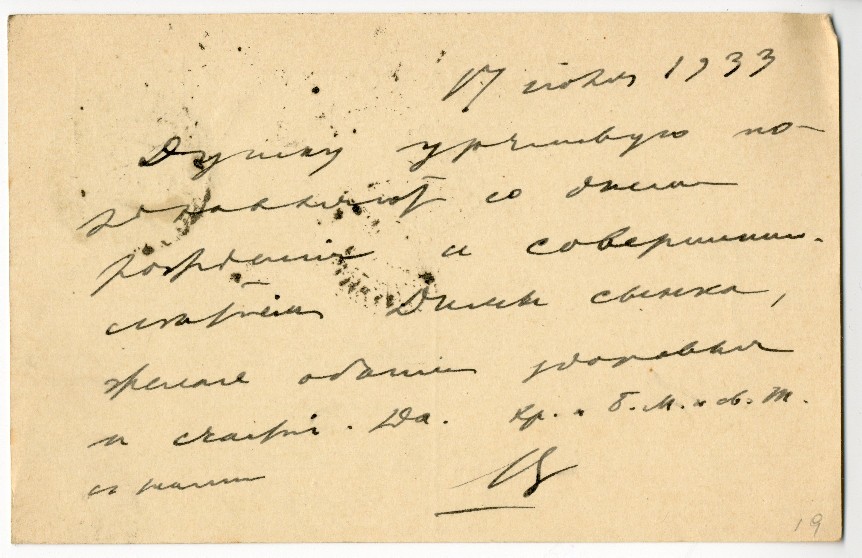 17 июля 1933
Душку урчливую по-
здравляют со днем
рождения и совершенно-
летием Димы сынка,
желаю обоим здоровья
и счастья. Да. Хр. и Б. М. и св. Т.
с нами
19